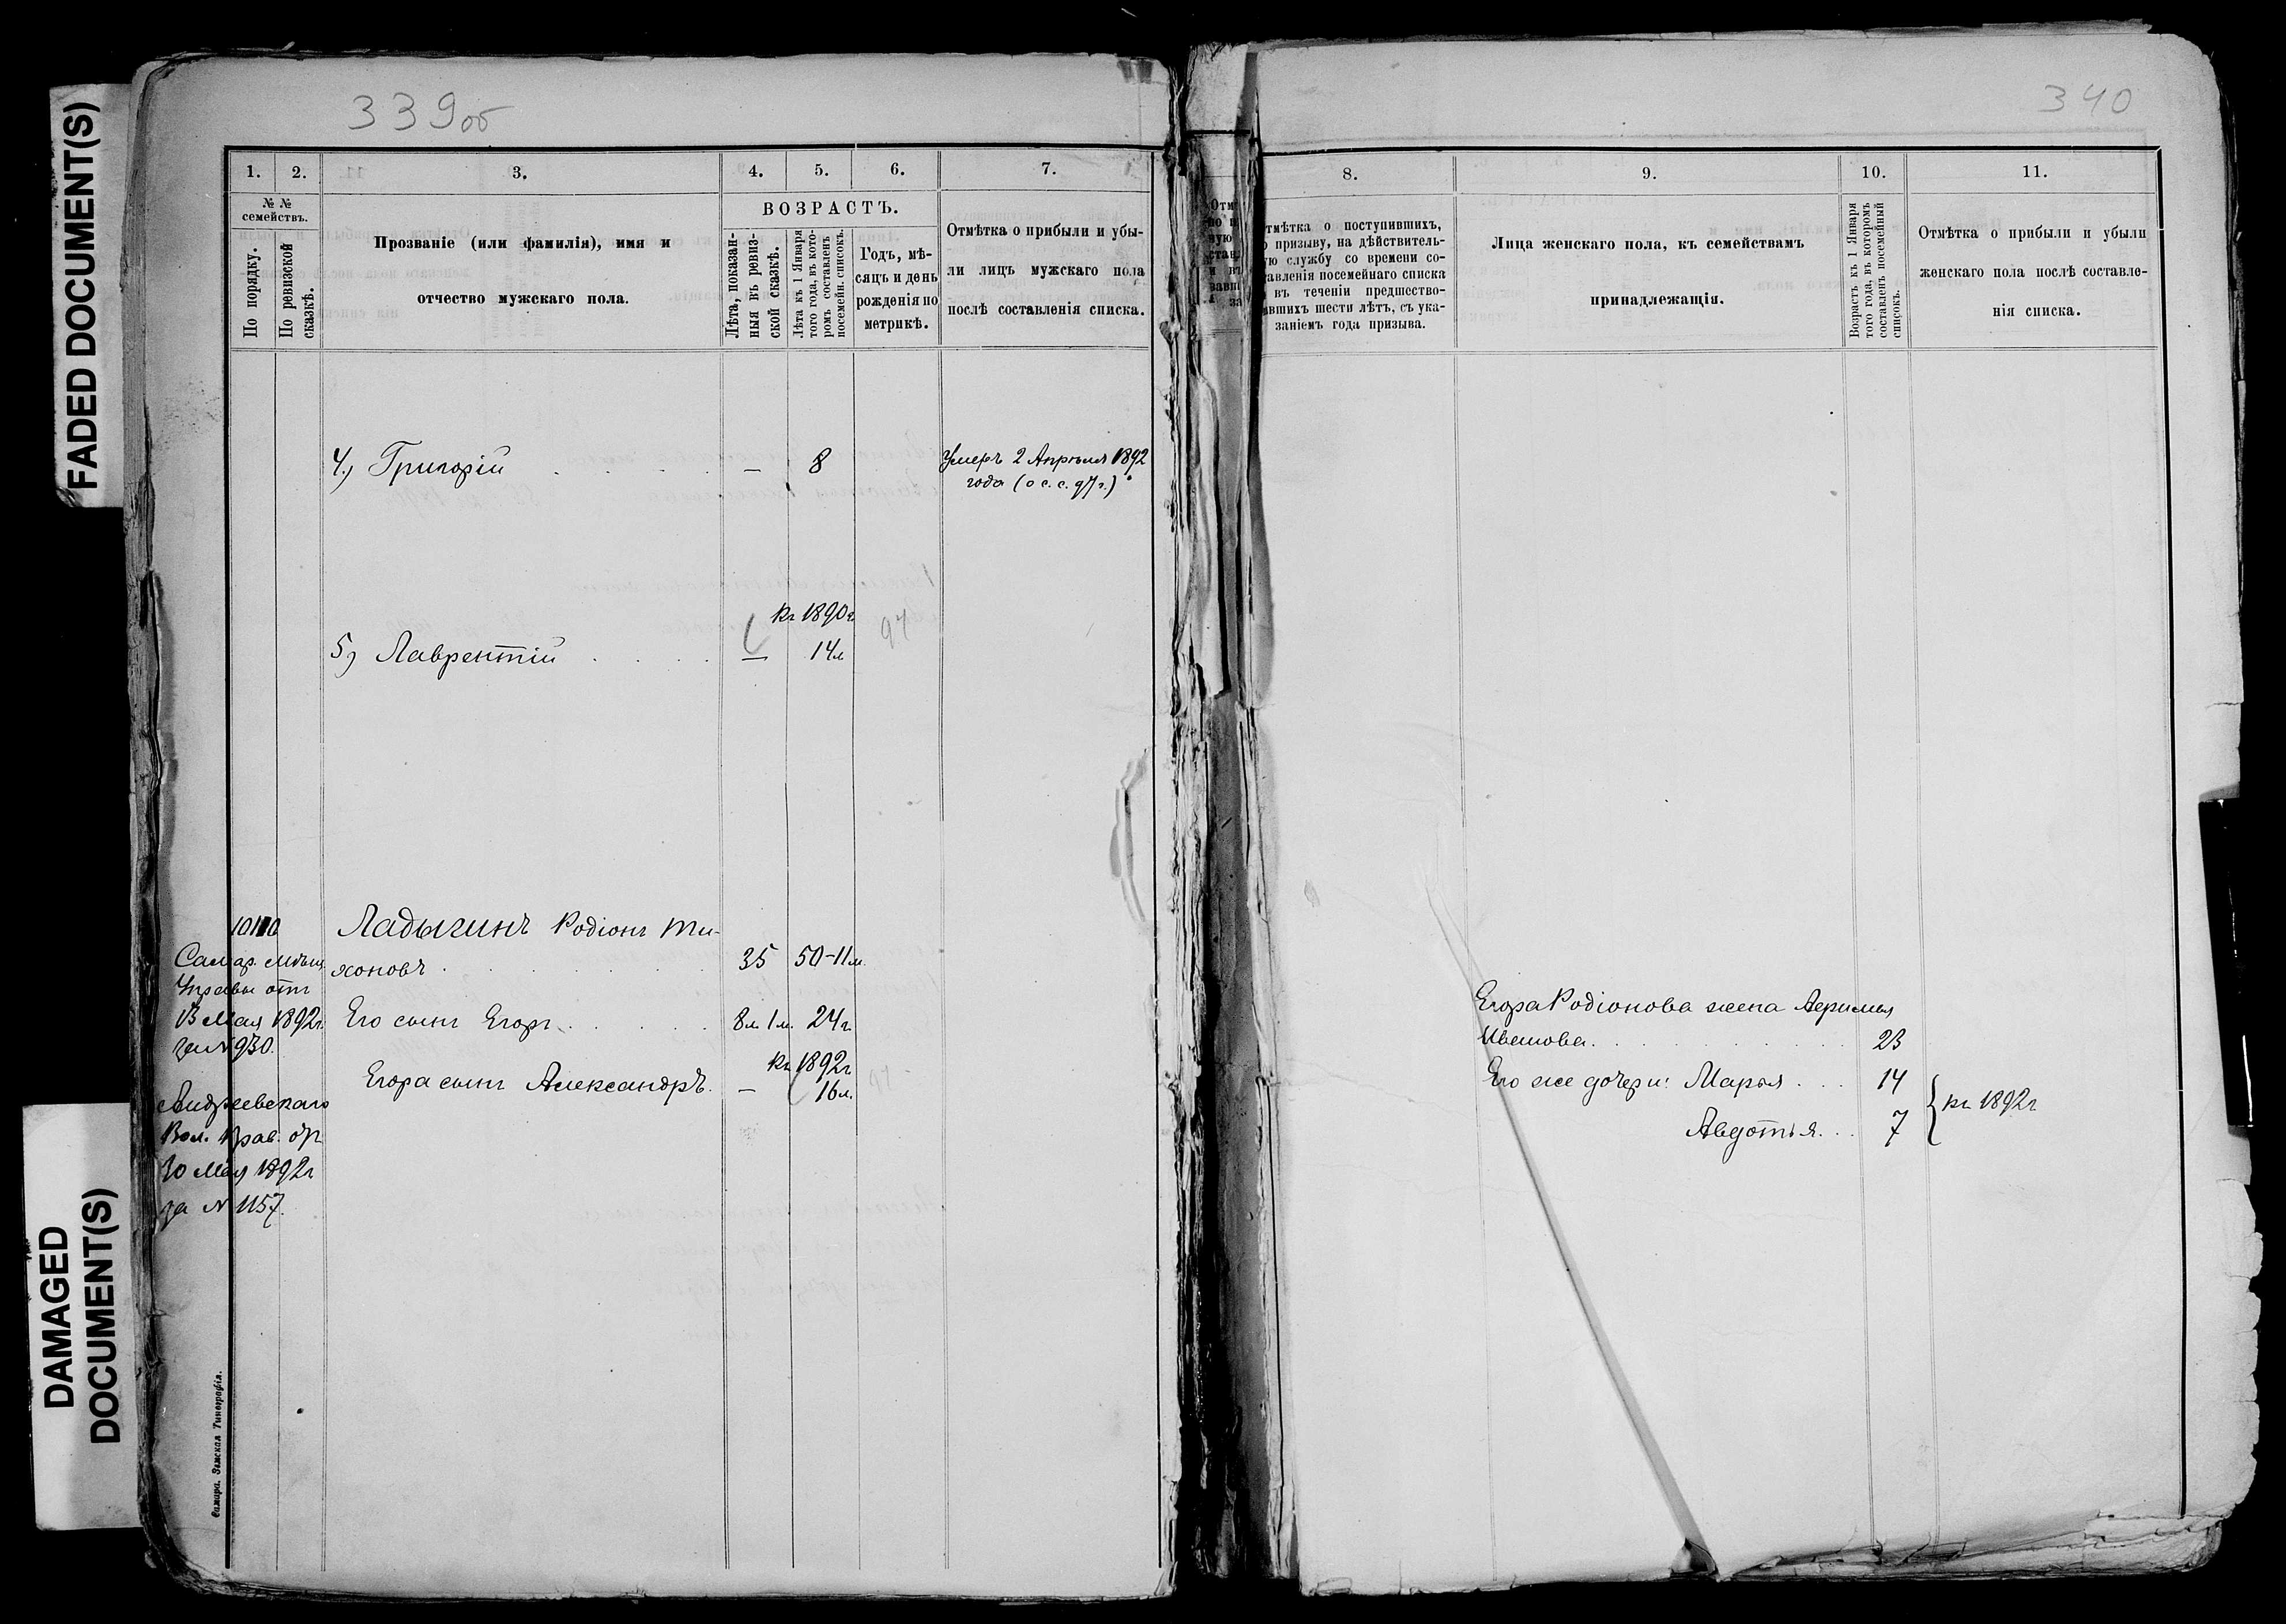 FADED DOCUMENT(S)
DAMAGED
DOCUMENT(S)
339об
1.
2.
3.
4.
5.
6.
7.
№ №
семействъ.
По порядку.
По ревизской
сказкѣ.
Прозваніе (или фамилія), имя и
отчество мужскаго пола.
ВОЗРАСТЪ.
Лѣта, показан-
ныя въ ревиз-
ской сказкѣ.
Лѣта къ 1 Января
того года, въ кото-
ромъ составленъ
посемейн. списокъ.
Годъ, мѣ-
сяцъ и день
рожденія по
метрикѣ.
Отмѣтка о прибыли и убы-
ли лицъ мужскаго пола
послѣ составленія списка.
4.) Григорій — 8 Умеръ 2 Апрѣля 1892
года (о с. с. 97 г.)
къ 1890 г
5) Лаврентій — 14 л 97
Ладыгинъ Родіонъ Ти-
хоновъ 35 50-11 м.
Самар. мѣщ.
Управы отъ
13 Мая 1892 г.
за № 930.
Его сынъ Егоръ 8 л 1 м. 24 г.
къ 1892 г
Егора сынъ Александръ — 16 л. 97
Андреевскаго
Вол. Прав. от
30 Мая 1892 г
за № 1157.
Самара. Земская Типографія.
340
8.
9.
10.
11.
тмѣтка о поступившихъ,
о призыву, на дѣйствитель-
ую службу со времени со-
тавленія посемейнаго списка
въ теченіи предшество-
авшихъ шести лѣтъ, съ ука-
заніемъ года призыва.
Лица женскаго пола, къ семействамъ
принадлежащія.
Возрастъ къ 1 Января
того года, въ которомъ
составленъ посемейный
списокъ.
Отмѣтка о прибыли и убыли
женскаго пола послѣ составле-
нія списка.
Егора Родіонова жена
Иванова. 23
Его же дочери: Марья 14
Авдотья 7
къ 1892 г